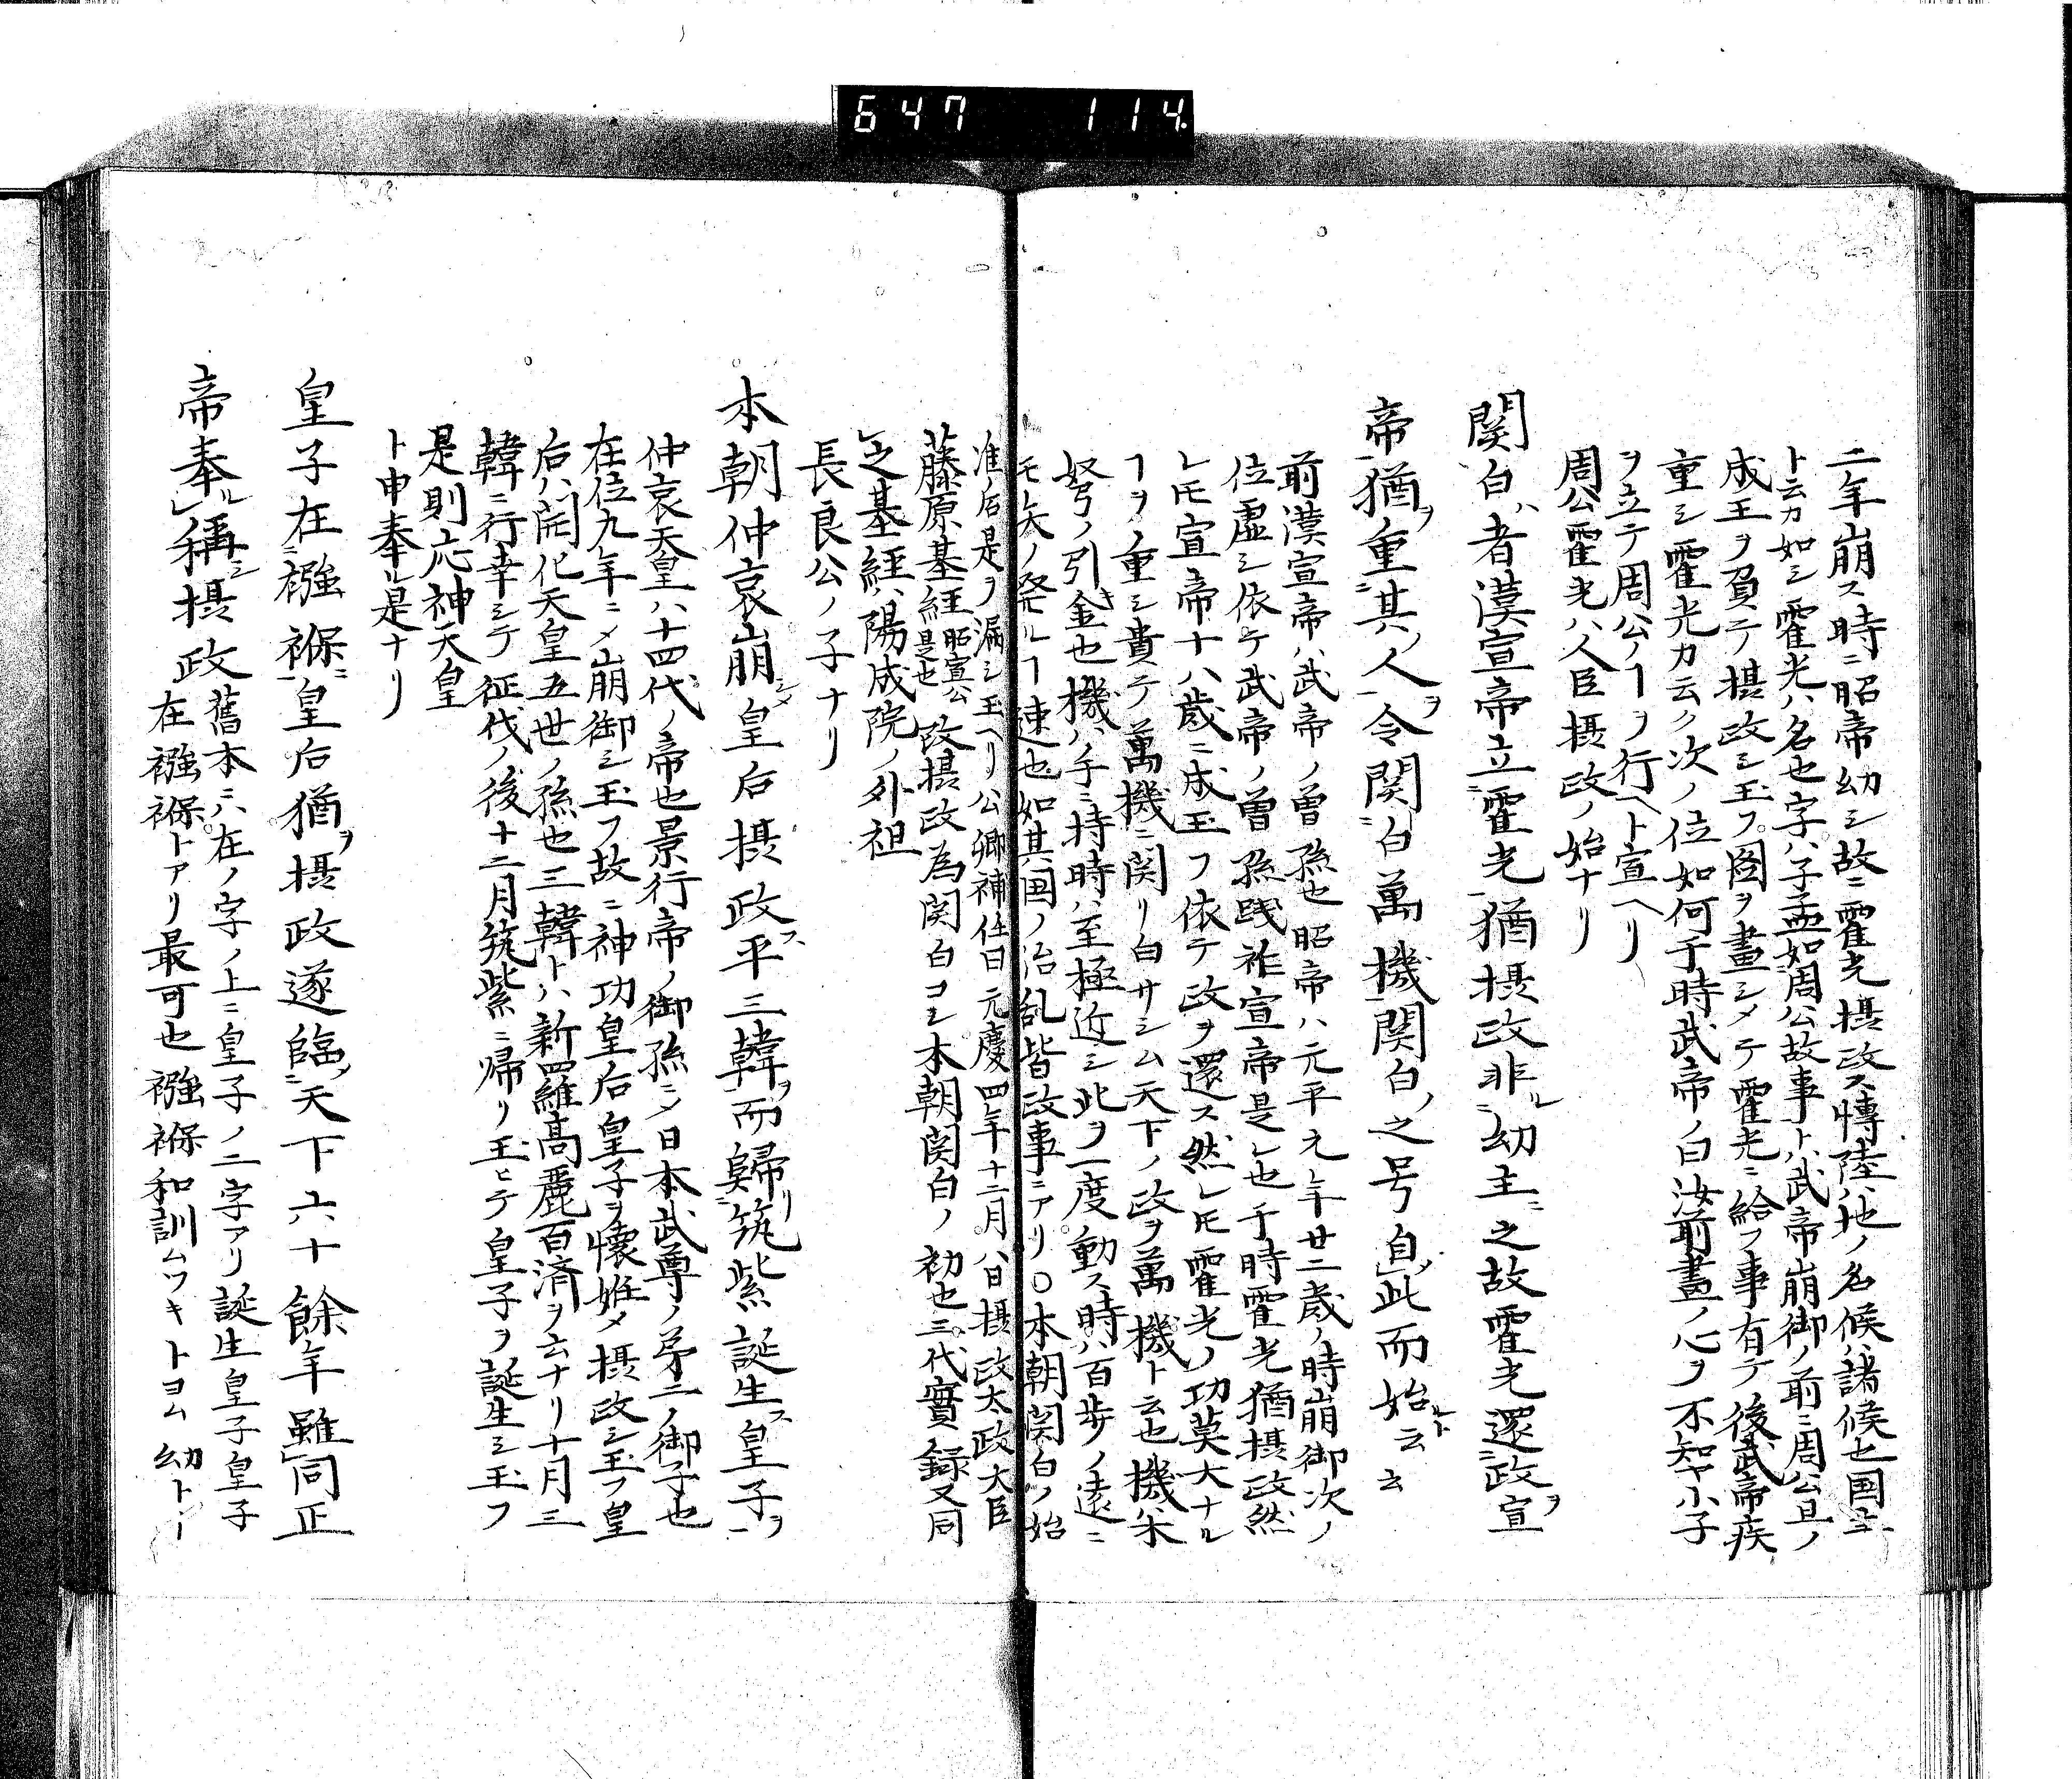 647 114.
二年崩ス時ニ昭帝幼シ故ニ霍光摂政ス博陸ハ地ノ名候ハ諸候也国ニ
ト云カ如シ霍光ハ名也字ハ子孟如周公故事トハ武帝崩御ノ前ニ周公旦ノ
成王ヲ負テ摂政シ玉フ図ヲ畫シメテ霍光ニ給フ事有テ後武帝疾
重シ霍光カ云ク次ノ位如何于時武帝ノ曰汝前畫ノ心ヲ不知ヤ小子
ヲ立テ周公ノヿヲ行ヘト宣ヘリ
周公霍光ハ人臣摂政ノ始ナリ
関白ハ者漢宣帝立霍光猶摂政非幼主ニ之故霍光還政ヲ宣
帝猶ヲ重其ノ人ヲ令関白萬機関白ノ之号自此而始ルト云云
前漢宣帝ハ武帝ノ曽孫也昭帝ハ元平元年廿二歳ノ時崩御次ノ
位虚シ依テ武帝ノ曽孫践祚宣帝是レ也于時霍光猶摂政然
レモ宣帝十八歳ニ成玉フ依テ政ヲ還ス然レモ霍光ノ功莫大ナル
ヿヲノ重シ貴テ萬機ニ関リ白サシム天下ノ政ヲ萬機ト云也機ハ木
弩ノ引金也機ハ手ニ持時ハ至極近シ此ヲ一度動ス時ハ百歩ノ遠ニ
モ矢ノ發ルヿ速也如其国ノ治乱皆政事ニアリ〇本朝関白ノ始
准后是ヲ漏シ玉ヘリ公卿補任曰元慶四年十二月八日摂政太政大臣
藤原基経昭宣公是也改摂政為関白ヨシ本朝関白ノ初也三代實録又同
之基経ハ陽成院ノ外祖
長良公ノ子ナリ
本朝仲哀崩シメ皇后摂政ス平三韓ヲ而歸リ筑紫誕生ス皇子ヲ
仲哀天皇ハ十四代ノ帝也景行帝ノ御孫ニメ日本武尊ノ第二ノ御子也
在位九年ニメ崩御シ玉フ故ニ神功皇后皇子ヲ懐妊メ摂政シ玉フ皇
后ハ開化天皇五世ノ孫也三韓トハ新羅高麗百済ヲ云ナリ十月三
韓ニ行幸シテ征伐ノ後十二月筑紫ニ帰リ玉ヒテ皇子ヲ誕生シ玉フ
是則応神天皇
ト申奉ル是ナリ
皇子在襁褓ニ皇后猶ヲ摂政遂臨天下六十餘年雖同正
帝奉ル稱シ摂政舊本ニハ在ノ字ノ上ニ皇子ノ二字アリ誕生皇子皇子
在襁褓トアリ最可也襁褓和訓ムツキトヨム幼ト